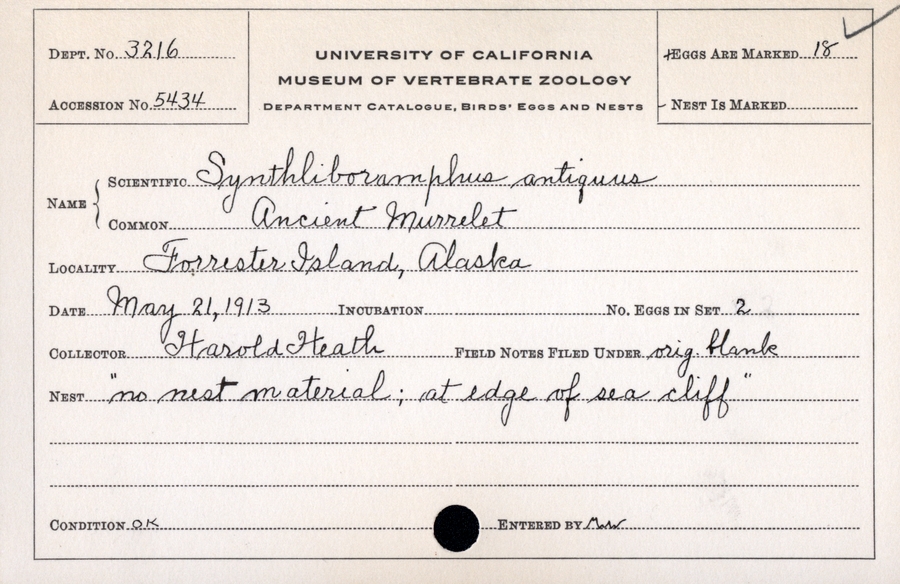 DEPT. No. 3216
ACCESSION No. 5434
UNIVERSITY OF CALIFORNIA
MUSEUM OF VERTEBRATE ZOOLOGY
DEPARTMENT CATALOGUE, BIRDS' EGGS AND NESTS
EGGS ARE MARKED 18
NEST IS MARKED
NAME { SCIENTIFIC Synthliboramphus antiquus
COMMON Ancient Murrelet
LOCALITY Forrester Island, Alaska
DATE May 21, 1913 INCUBATION No. EGGS IN SET 2
COLLECTOR Harold Heath FIELD NOTES FILED UNDER orig. blank
NEST "no nest material; at edge of sea cliff"
CONDITION OK ENTERED BY